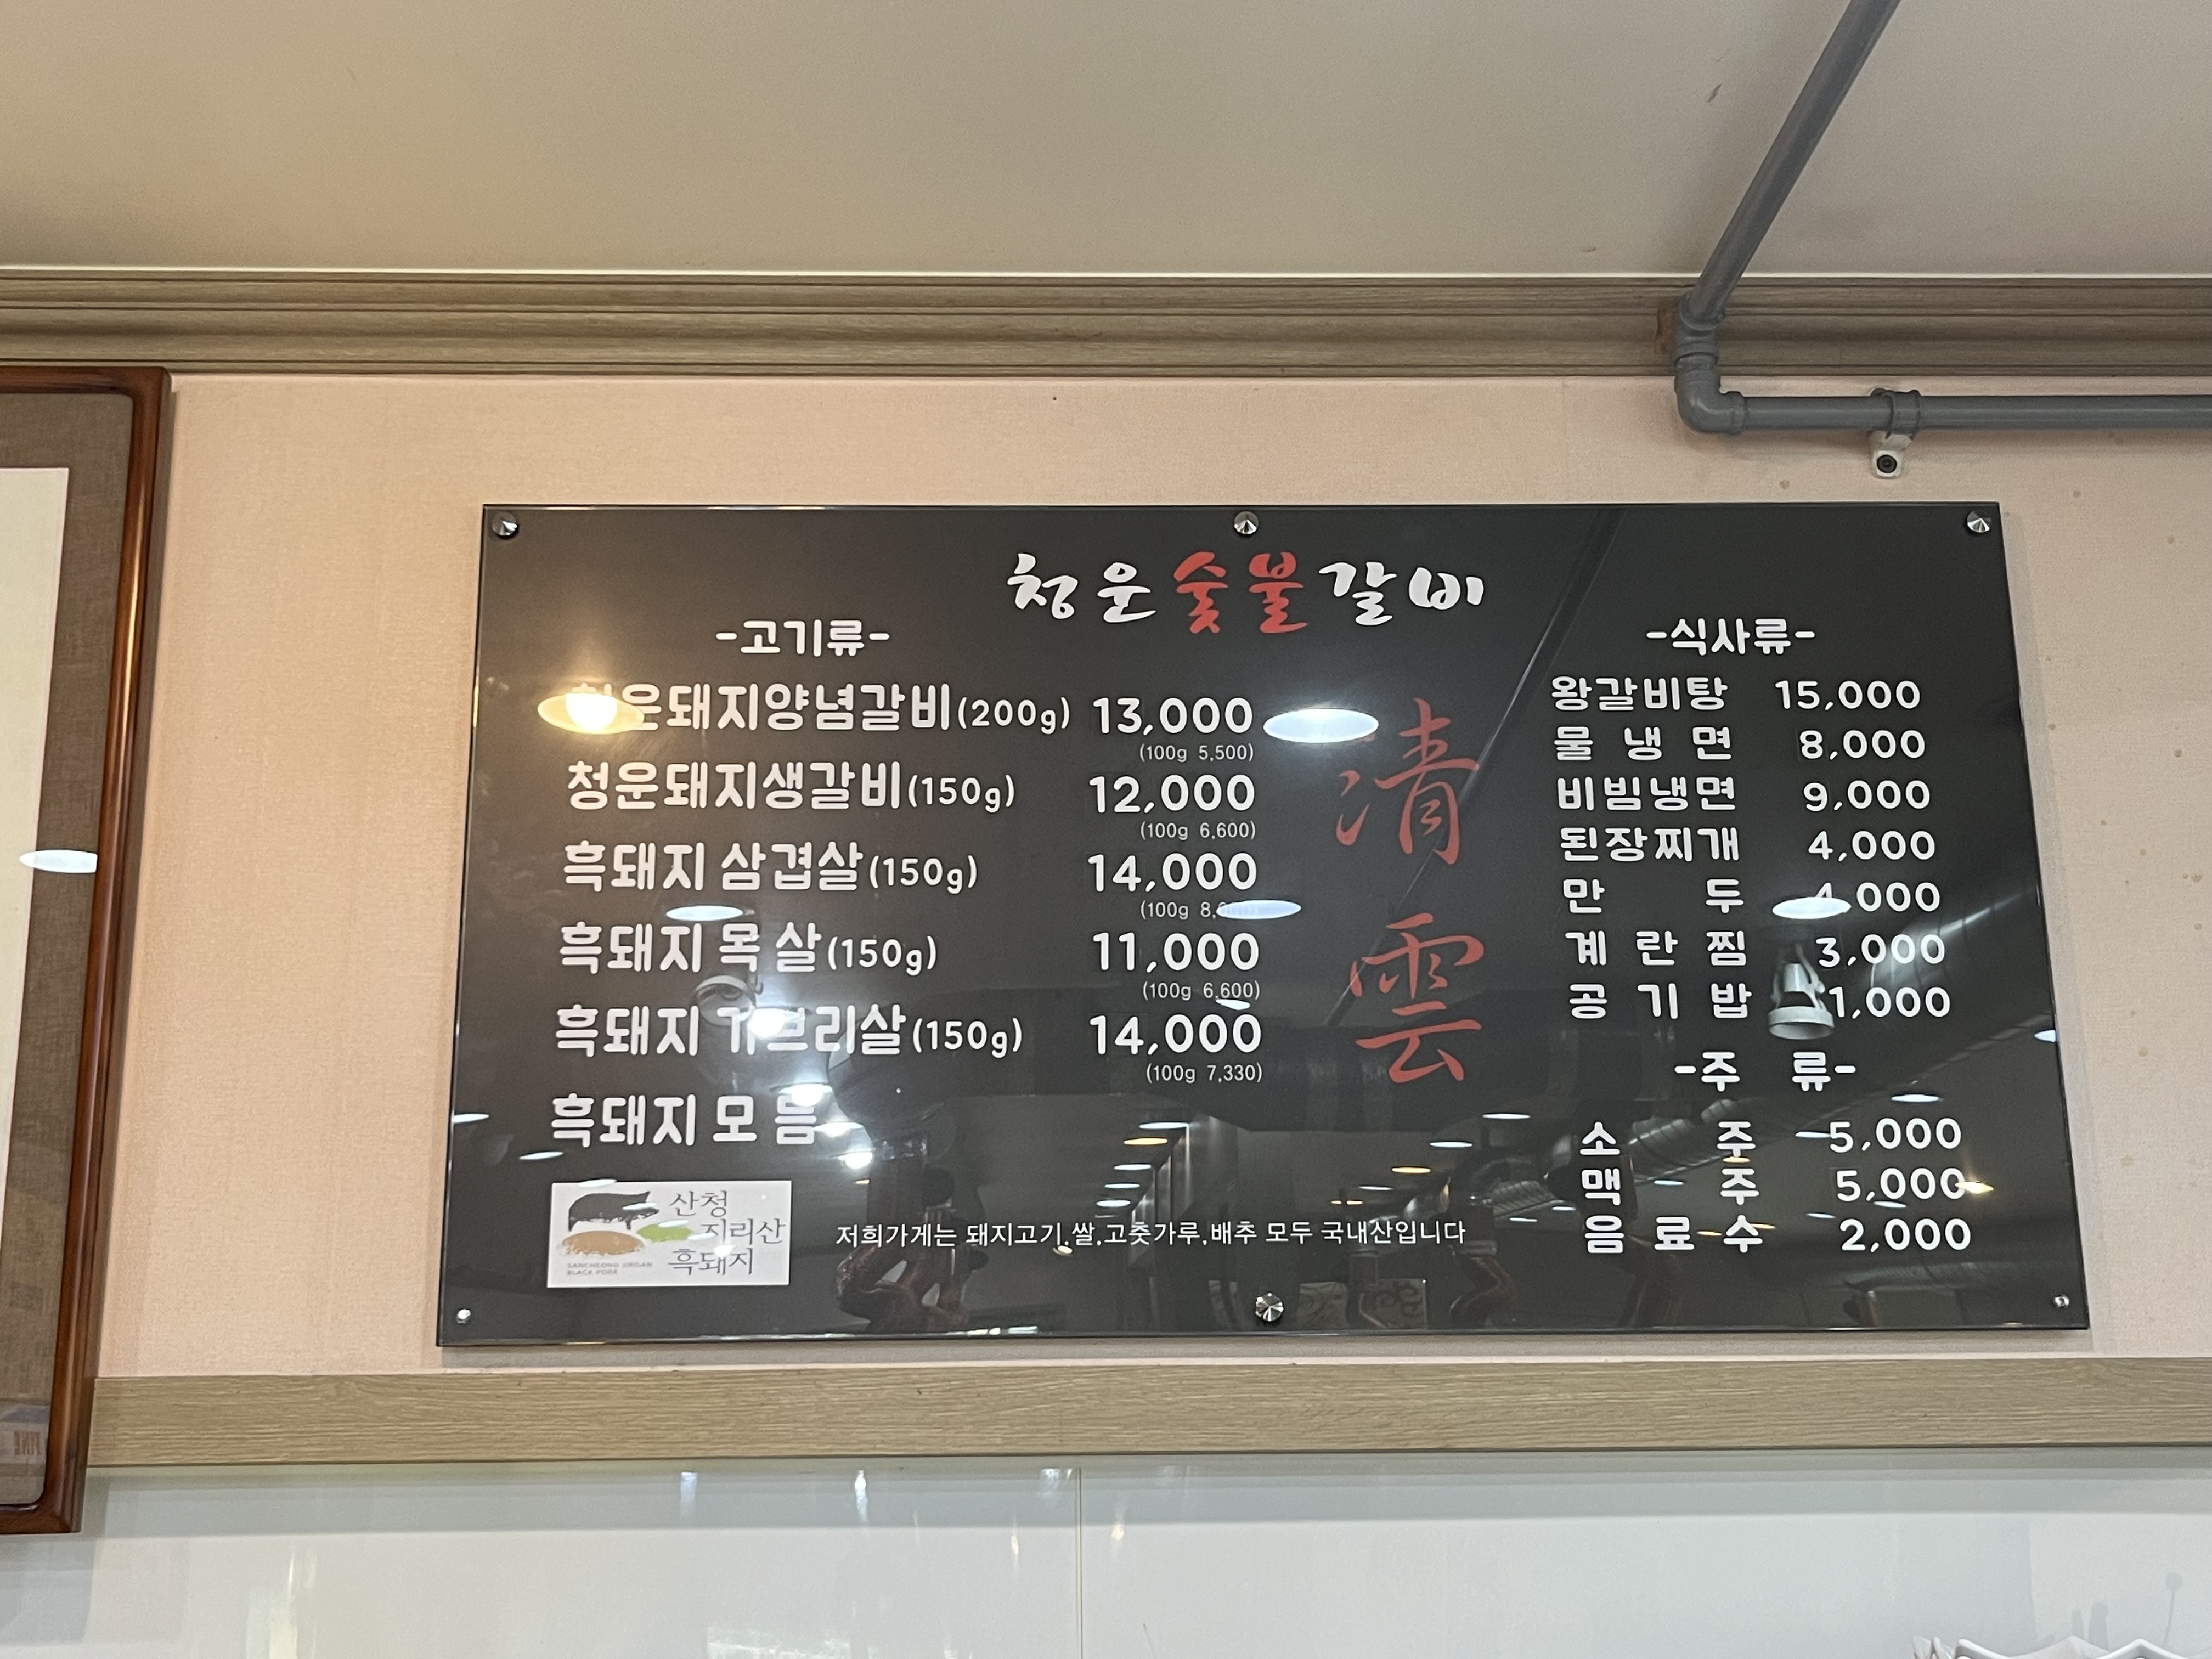 청운숯불갈비
-고기류-
청운돼지양념갈비(200g) 13,000
(100g 5,500)
청운돼지생갈비(150g) 12,000
(100g 6,600)
흑돼지 삼겹살(150g) 14,000
(100g
흑돼지 목살(150g) 11,000
(100g 6,600)
흑돼지 가브리살(150g) 14,000
(100g 7,330)
흑돼지 모듬
清
雲
-식사류-
왕갈비탕 15,000
물 냉 면 8,000
비빔냉면 9,000
된장찌개 4,000
만 두 4,000
계 란 찜 3,000
공 기 밥 1,000
-주 류-
소 주 5,000
맥 주 5,000
음 료 수 2,000
산청
지리산
흑돼지
SANCHEONG JIRISAN
BLACK PORK
저희가게는 돼지고기,쌀,고춧가루,배추 모두 국내산입니다